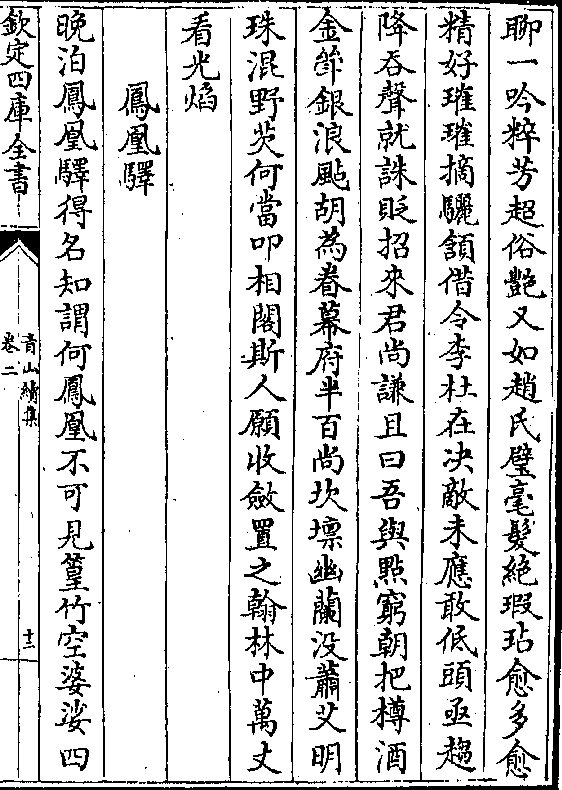 聊一吟粹芳超俗艷又如趙氏璧毫髪絶瑕玷愈多愈
精好璀璀摘驪頷借令李杜在决敵未應敢低頭亟趨
降吞聲就誅貶招來君尚謙且曰吾與㸃窮朝把樽酒
金𥮅銀浪颭胡為眷幕府半百尚坎壈幽蘭没蕭艾明
珠混野芡何當叩相閣斯人願收斂置之翰林中萬丈
看光焰
鳳凰驛
晩泊鳳凰驛得名知謂何鳳凰不可見篁竹空婆娑四
欽定四庫全書
青山續集
卷二
十二